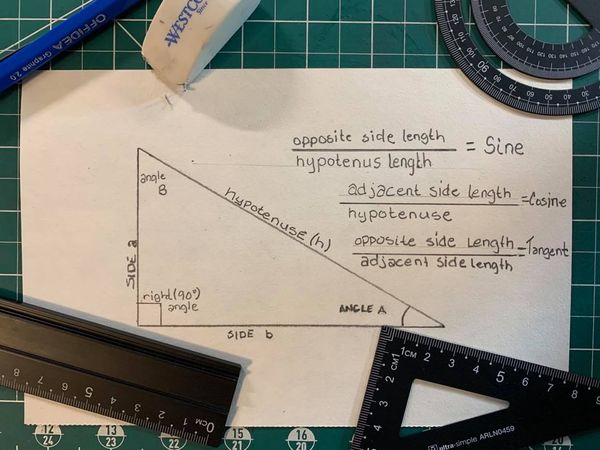 OFFIDEA
Graphite 2.0
WESTCO
opposite side length
hypotenus length
= Sine
adjacent side length
hypotenuse
=Cosine
opposite side length
adjacent side length
=Tangent
angle
B
hypotenuse (h)
SIDE a
right (90°)
angle
ANGLE A
SIDE b
0CM 1 2 3 4 5 6 7 8
1CM 2 3 4 5 6 7 8 9
1CM 2 3 4
ultra-simple ARLNO459
12 13 15 16
24 23 21 20